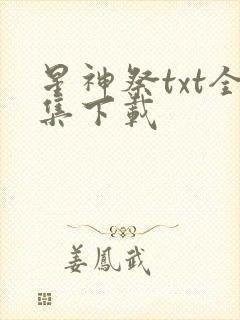 星神祭txt全
集下载
姜鳳武